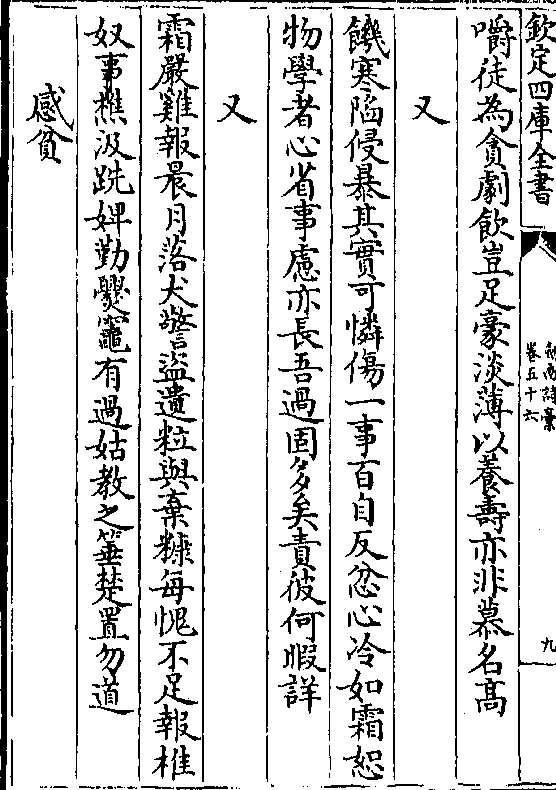 欽定四庫全書
劍南詩稾
卷五十六
九
嚼徒為貪劇飲豈足豪淡薄以養壽亦非慕名髙
又
饑寒陷侵暴其實可憐傷一事百自反忿心冷如霜恕
物學者心省事慮亦長吾過固多矣責彼何暇詳
又
霜嚴雞報晨月落犬警盜遺粒與棄糠每愧不足報椎
奴事樵汲跣婢勤爨竈有過姑教之箠楚置勿道
感貧